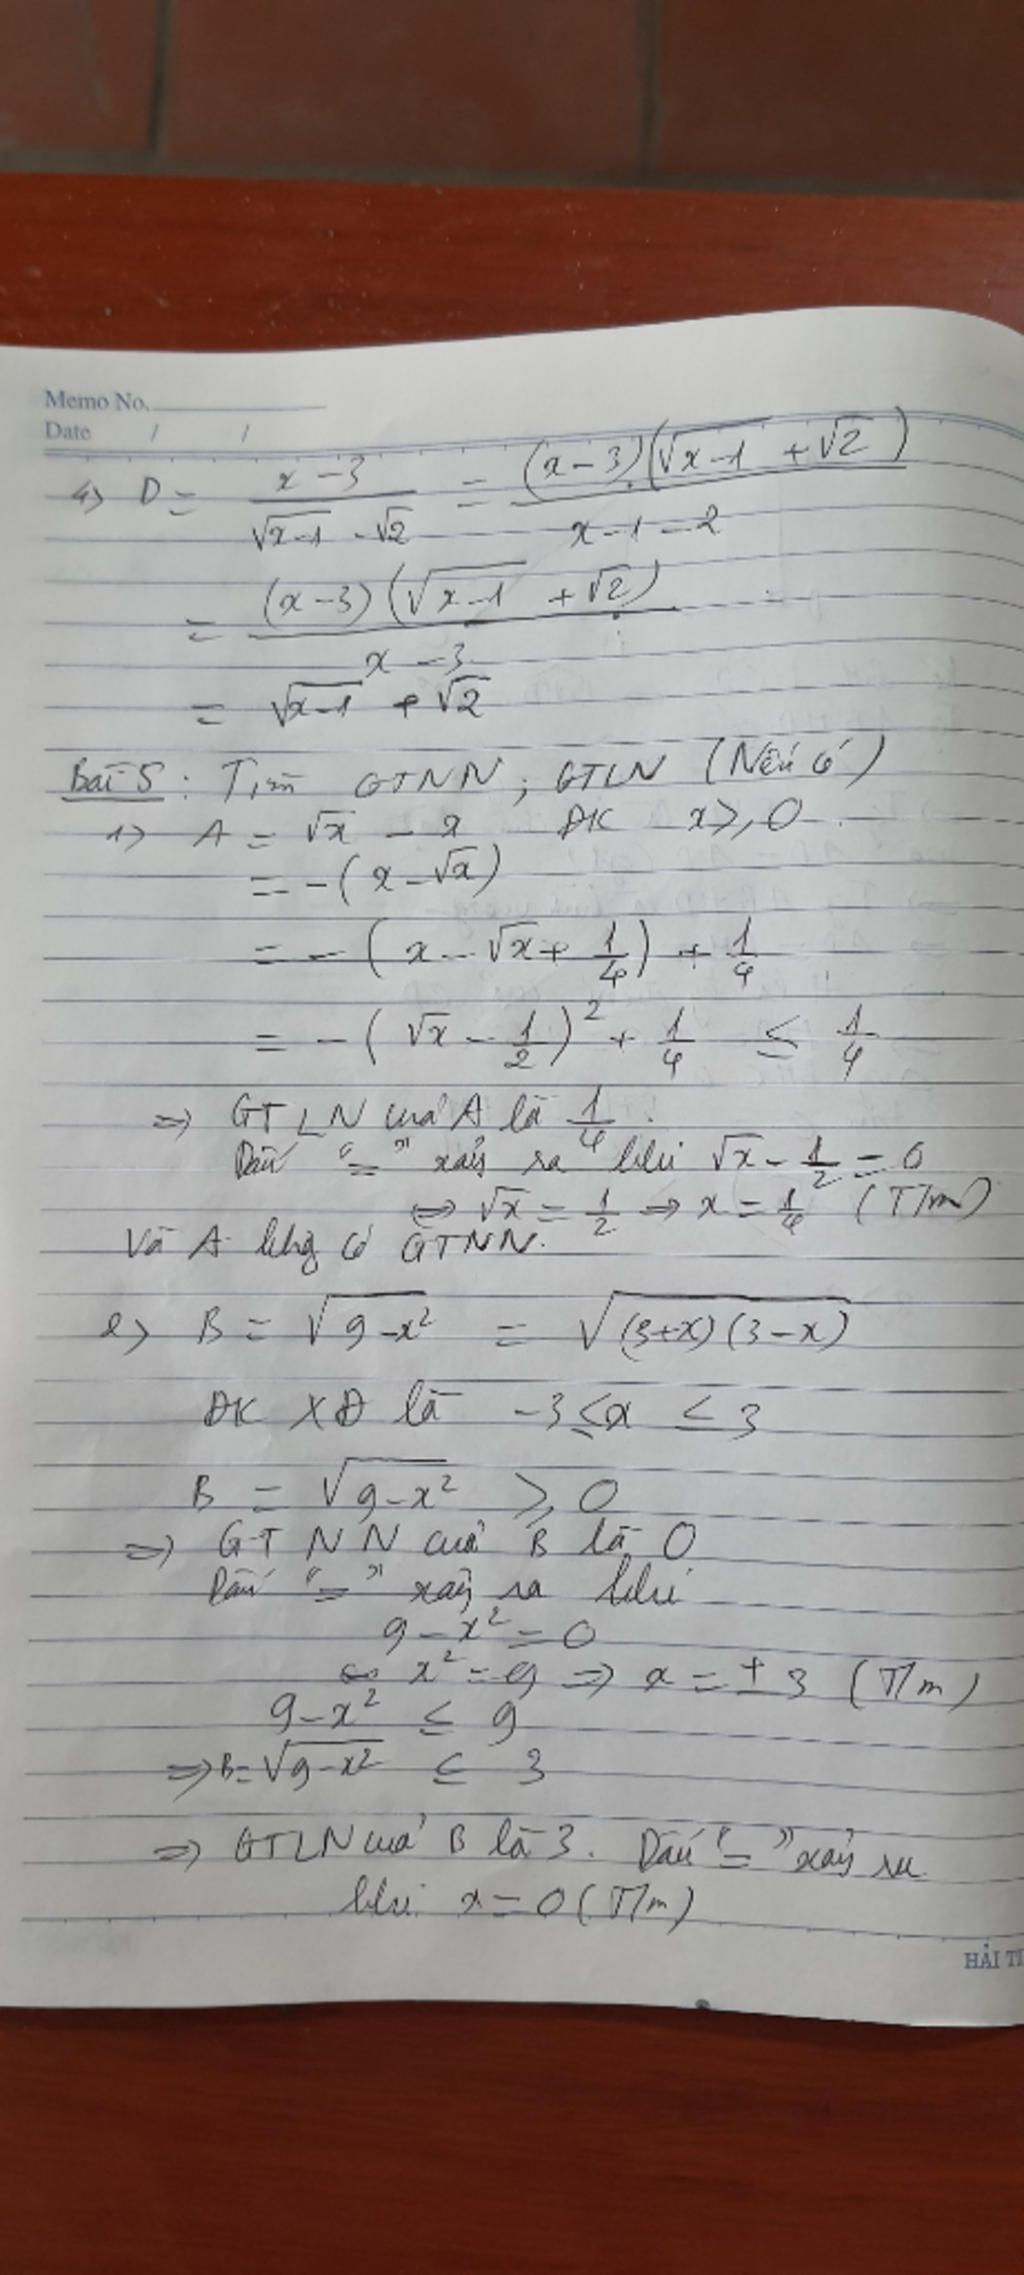 Memo No.
Date / /
4> D = \frac{x-3}{\sqrt{x-1} - \sqrt{2}} = \frac{(x-3)(\sqrt{x-1} + \sqrt{2})}{x-1-2}
= \frac{(x-3)(\sqrt{x-1} + \sqrt{2})}{x-3}
= \sqrt{x-1} + \sqrt{2}
Bài 5: Tìm GTNN; GTLN (Nếu có)
1> A = √x - x ĐK x ≥ 0
= -(x - √x)
= -(x - √x + 1/4) + 1/4
= -(√x - 1/2)² + 1/4 ≤ 1/4
=> GTLN của A là 1/4.
Dấu "=" xảy ra khi √x - 1/2 = 0
⇔ √x = 1/2 => x = 1/4 (T/m)
Và A khg có GTNN.
2> B = \sqrt{9-x²} = \sqrt{(3+x)(3-x)}
ĐK XĐ là -3 ≤ x ≤ 3
B = \sqrt{9-x²} ≥ 0
=> GTNN của B là 0
Dấu "=" xảy ra khi
9 - x² = 0
⇔ x² = 9 => x = ±3 (T/m)
9 - x² ≤ 9
=> B = \sqrt{9-x²} ≤ 3
=> GTLN của B là 3. Dấu "=" xảy ra
khi x = 0 (T/m)